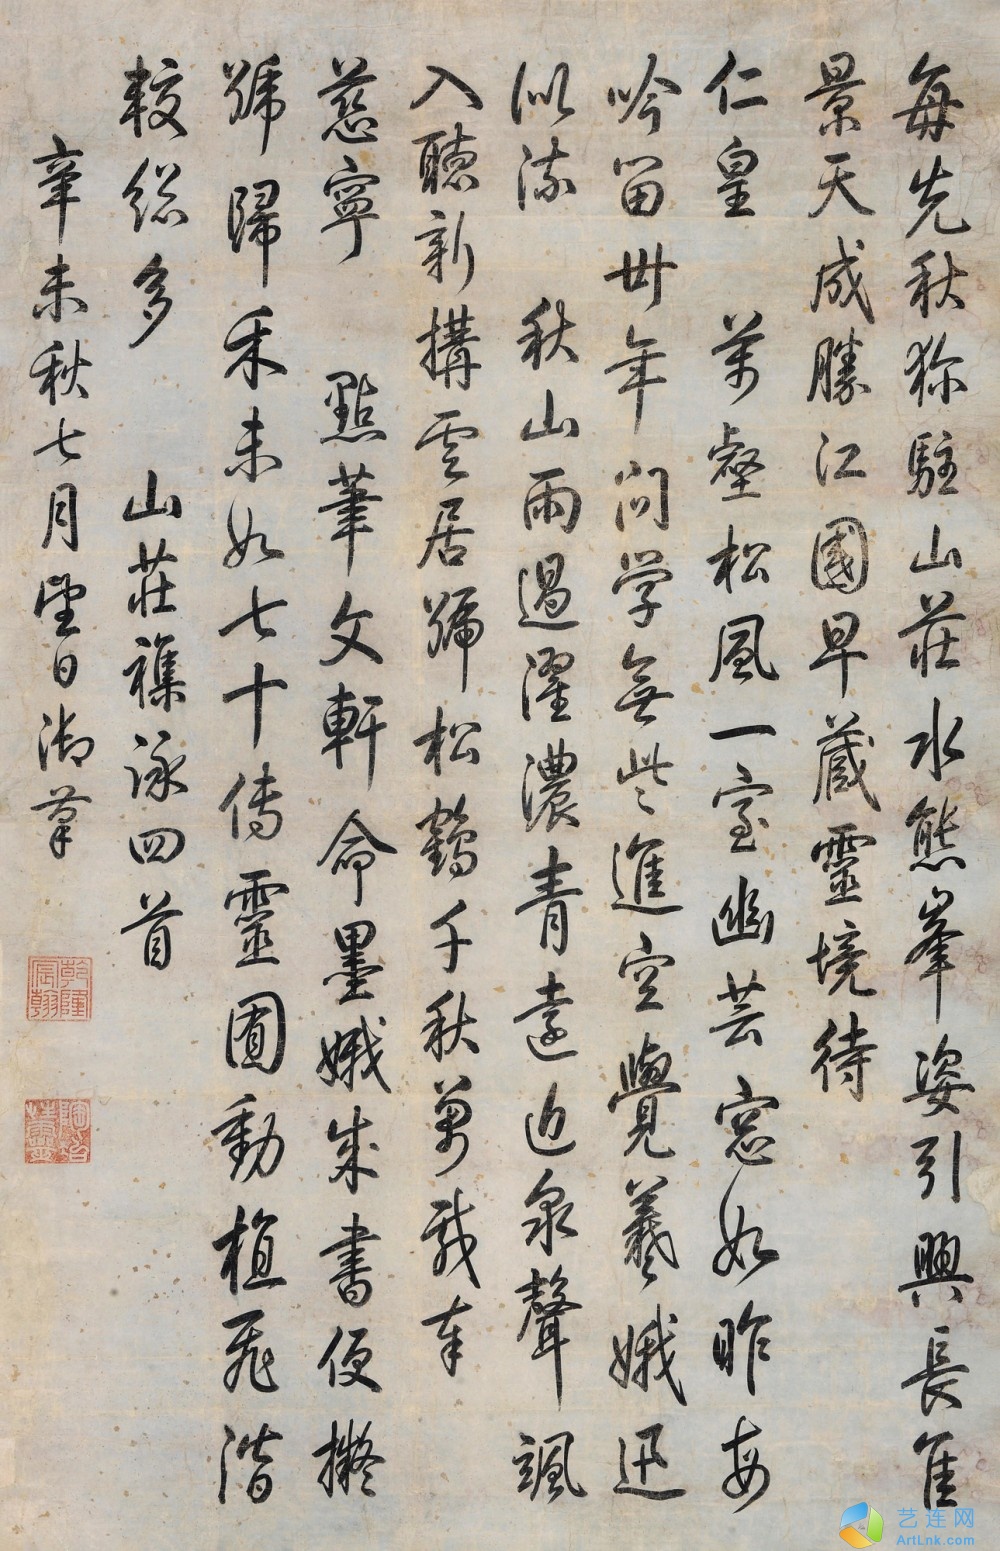 每先秋狝駐山莊水態峯姿引興長隹
景天成勝江國早蔵靈境待
仁皇 萬壑松風一室幽芸窓如昨每
吟留卅年问学無些進空覺羲娥迅
似流 秋山雨過濯濃青遠近泉聲颯
入聽新搆雲居號松鶴千秋萬載奉
慈寧 點筆文軒命墨娥成書便擬
號歸禾未如七十傳靈囿動植飛潛
較總多 山莊襍詠四首
辛未秋七月望日御筆
乾隆宸翰
艺连网
ArtLnk.com